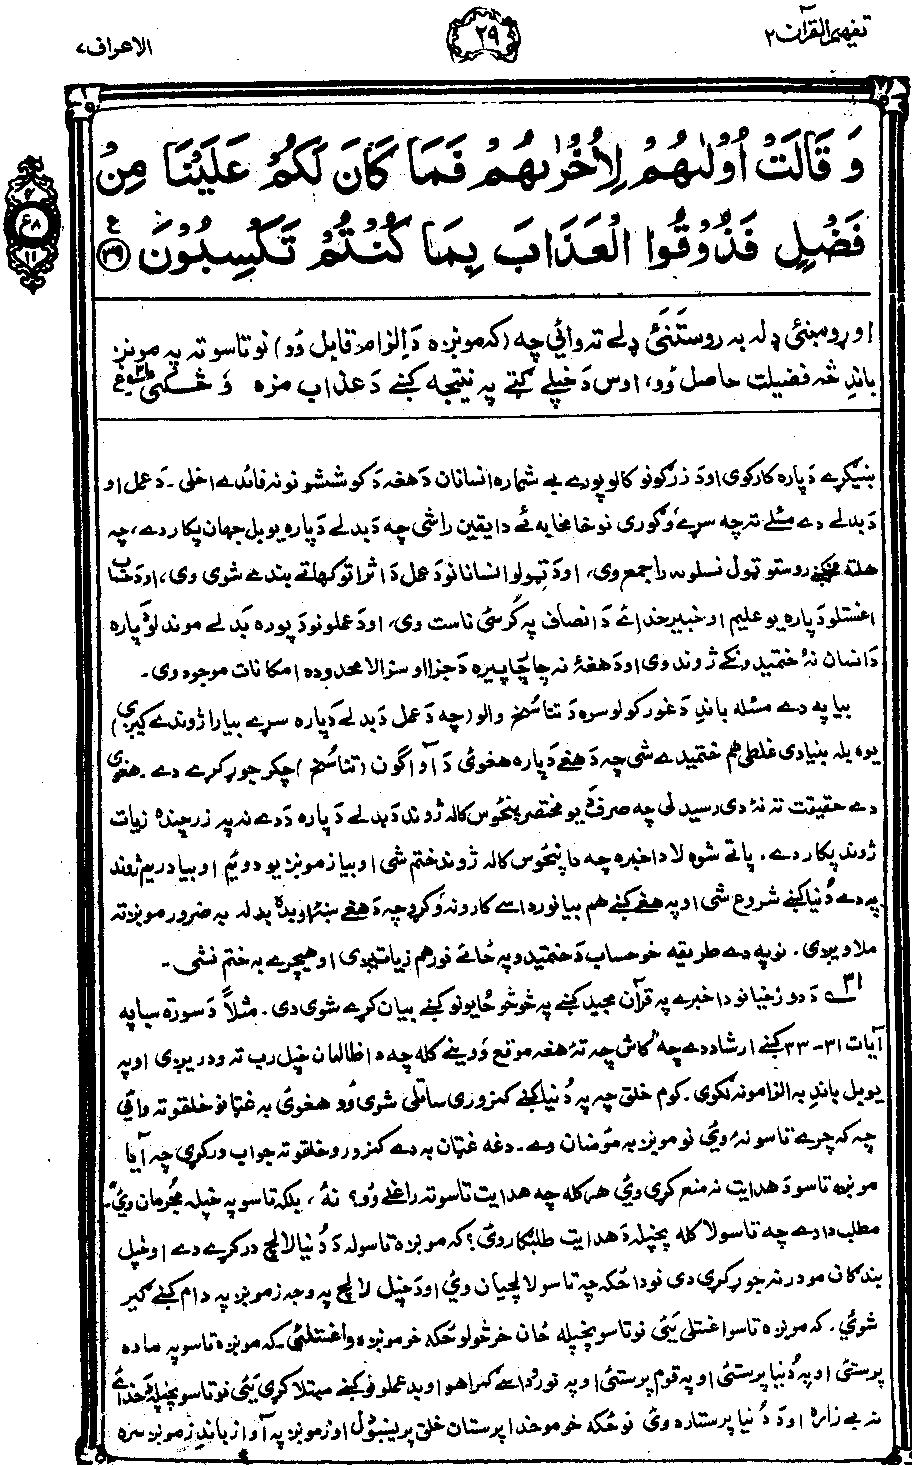 تفهیم القرآن ۲
۲۹
الاعراف ۷
وَ قَالَتْ اُوْلٰىهُمْ لِاُخْرٰىهُمْ فَمَا كَانَ لَكُمْ عَلَيْنَا مِنْ
فَضْلٍ فَذُوْقُوا الْعَذَابَ بِمَا كُنْتُمْ تَكْسِبُوْنَ ۳۹
ع
۴
ع۸
۱۱
او ړومبنئ ډله به روستنئ ډلے ته وائي چه (که مونږه د الزام قابل وُو) نو تاسو ته په مونږ
باندِ څه فضیلت حاصل وُو، اوس دَ خپلے ګټے په نتیجه کښے دَ عذاب مزه وَ څکئ
بنیګرے دَ پاره کار کوی او دَ زرګونو کالو پورے بے شماره انسانان دَ هغه دَ کوششونو نه فائدے اخلی ۔ دَ عمل او
دَ بدلے دے مسٔلے ته چه سړے وګوری نو خامخا به ئے دا یقین راشی چه دَ بدلے دَ پاره یو بل جهان پکار دے، چه
هلته مخکښے روستو ټول نسلونه راجمع وی، او دَ ټولو انسانانو دَ عمل دَ اثراتو کهاتے بندے شوی وی، او دَ حساب
اغستلو دَ پاره یو علیم او خبیر خدائے دَ انصاف په کُرسئ ناست وی، او دَ عملونو دَ پوره بدلے موندلو دَ پاره
دَ انسان نهٔ ختمیدونکے ژوند وی او دَ هغهٔ نه چاپیره دَ جزا او سزا لامحدوده امکانات موجود وی ۔
بیا په دے مسٔله باندِ دَ غور کولو سره دَ تناسُخ والو (چه دَ عمل دَ بدلے دَ پاره سړے بیا را ژوندے کیږی)
یوه بله بنیادی غلطی هم ختمیدے شی چه دَ هغے دَ پاره هغوئ دَ آواګون (تناسُخ) چکر جوړ کړے دے ۔ هغوی
دے حقیقت ته نهٔ دی رسیدلی چه صرف دَ یو مختصر پنځوس کاله ژوند دَ بدلے دَ پاره دَ دے نه په زر چنده زیات
ژوند پکار دے ۔ پاتے شوه لا دا خبره چه دا پنځوس کاله ژوند ختم شی او بیا زمونږ یو دوئیم او بیا دریم ژوند
په دے دُنیا کښے شروع شی او په هغے کښے هم بیا نوره داسے کارونه وکړو چه دَ هغے ښهٔ او بدهٔ بدله به ضرور مونږ ته
ملاویږی ۔ نو په دے طریقه خو حساب دَ ختمیدو په ځائے نور هم زیاتیږی او هیچرے به ختم نشی ۔
۳۱ دَ دوزخیانو دا خبرے په قرآن مجید کښے په څو څو ځایونو کښے بیان کړے شوی دی ۔ مثلاً دَ سورة سبا په
آیات ۳۱-۳۳ کښے ارشاد دے چه کاش چه تهٔ هغه موقع وَوینے کله چه دا ظالمان خپل رب ته ودریږی او په
یو بل باندِ به الزامونه لګوی ۔ کوم خلق چه په دُنیا کښے کمزوری ساتلی شوی وُو هغوئ به غټانو خلقو ته وائي
چه که چرے تاسو نهٔ وئ نو مونږ به مؤمنان وے ۔ دغه غټان به دے کمزورو خلقو ته جواب ورکړی چه آیا
مونږه تاسو دَ هدایت نه منع کړی وئ هر کله چه هدایت تاسو ته راغلے وُو؟ نهٔ، بلکه تاسو په خپله مُجرمان وئ ۔
مطلب دا دے چه تاسو لا کله پخپله دَ هدایت طلبګار وئ؟ که مونږه تاسو له دَ دُنیا لالچ درکړے دے او خپل
بندګان مو درنه جوړ کړی دی نو دا ځکه چه تاسو لالچیان وئ او دَ خپل لالچ په وجه زمونږ په دام کښے ګیر
شوئ ۔ که مونږه تاسو اغستلی یئ نو تاسو پخپله ځان خرڅولو ځکه خو مونږه واغستلئ ۔ که مونږه تاسو په ماده
پرستئ او په دُنیا پرستئ او په قوم پرستئ او په نورو داسے ګمراهو او بد عملونو کښے مبتلا کړی یئ نو تاسو پخپله دَ خدائے
نه بے زاره او دَ دُنیا پرستاره وئ نو ځکه خو مو خدا پرستان خلق پرېښودل او زمونږ په آواز باندِ زمونږ سره